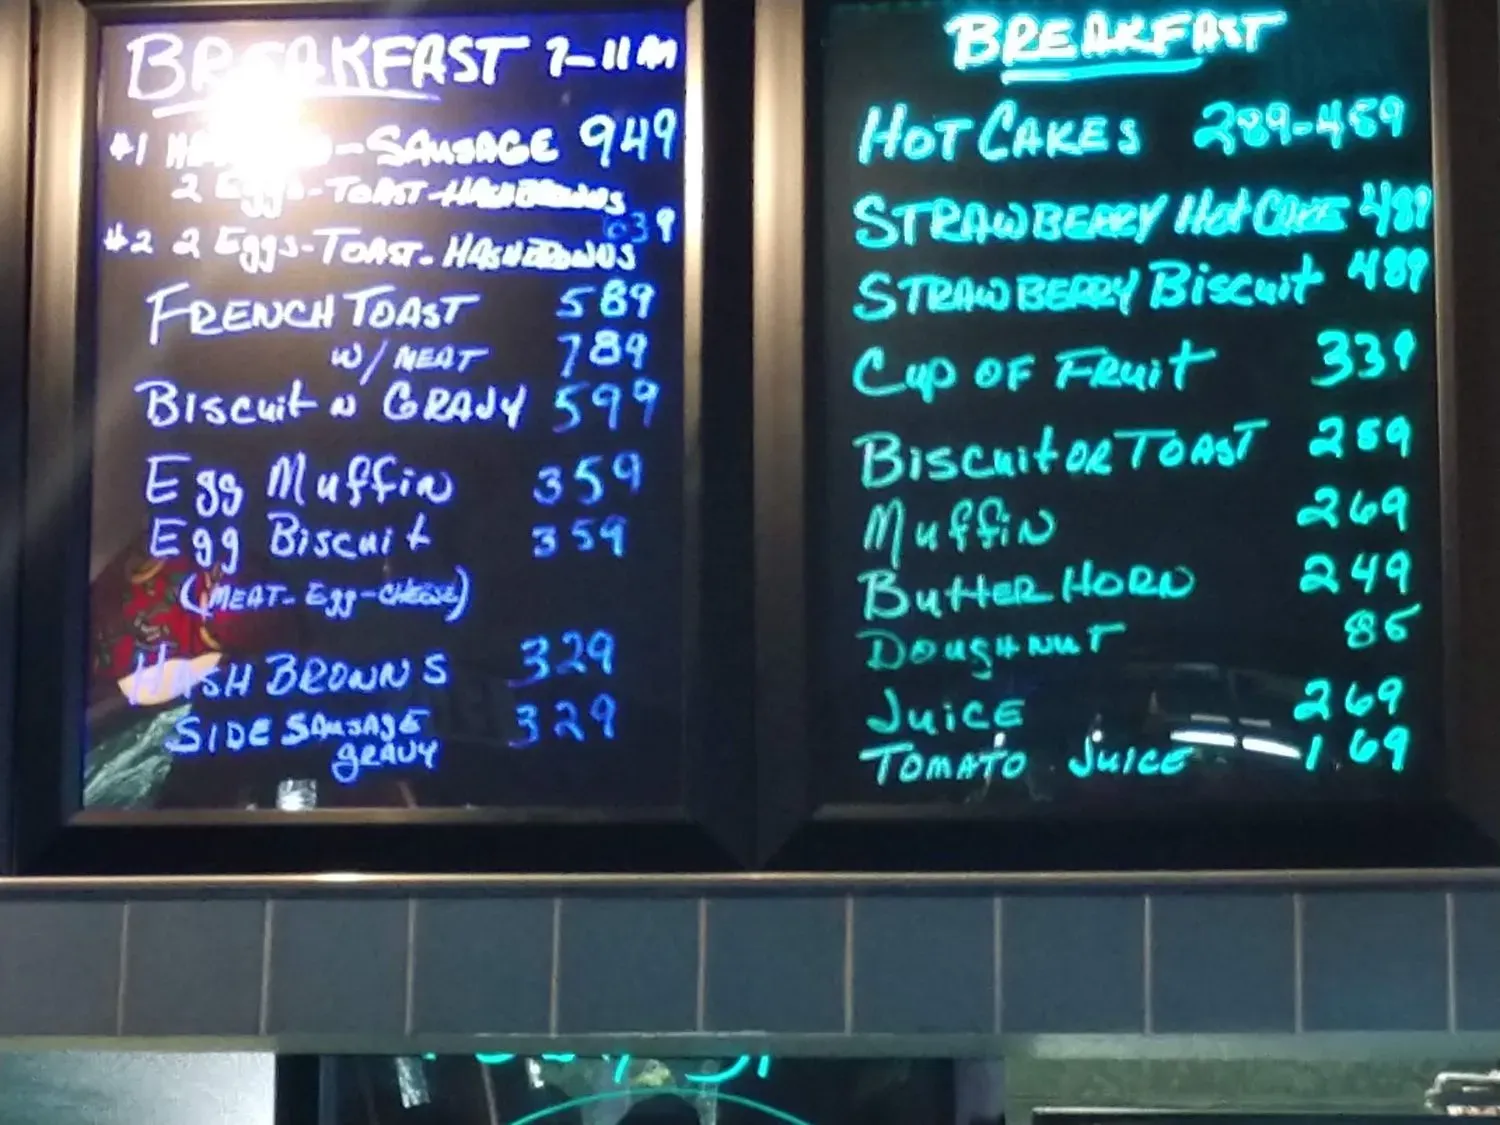 BREAKFAST 7-11 AM
#1 - SAUSAGE 949
2 Eggs - TOAST - HASHBROWNS
#2 2 Eggs - TOAST - HASHBROWNS 639
FRENCH TOAST 589
W/ MEAT 789
BISCUIT N GRAVY 599
Egg Muffin 359
Egg Biscuit 359
(MEAT - Egg - CHEESE)
HASH BROWNS 329
SIDE SAUSAGE 329
GRAVY
BREAKFAST
HOT CAKES 289-459
STRAWBERRY HOT CAKE 489
STRAWBERRY BISCUIT 489
CUP OF FRUIT 339
BISCUIT OR TOAST 259
Muffin 269
BUTTER HORN 249
DOUGHNUT 85
JUICE 269
TOMATO JUICE 1 69